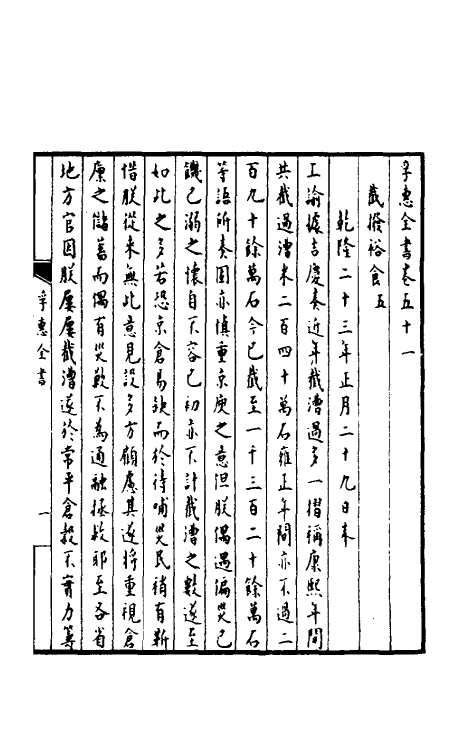 孚惠全書卷五十一
截撥裕食五
乾隆二十三年正月二十九日奉
上諭據吉慶奏近年截漕過多一摺稱康熙年間
共截過漕米二百四十萬石雍正年間亦不過二
百九十餘萬石今已截至一千三百二十餘萬石
等語所奏固亦慎重京庾之意但朕偶遇偏災己
饑己溺之懷自不容已初亦不計截漕之數遂至
如此之多若恐京倉易缺而於待哺災民稍有靳
惜朕從來無此意見設多方顧慮其遂將重視倉
廩之儲蓄而偶有災歉不為通融拯救耶至各省
地方官因朕屢屢截漕遂於常平倉穀不實力籌
孚惠全書
一